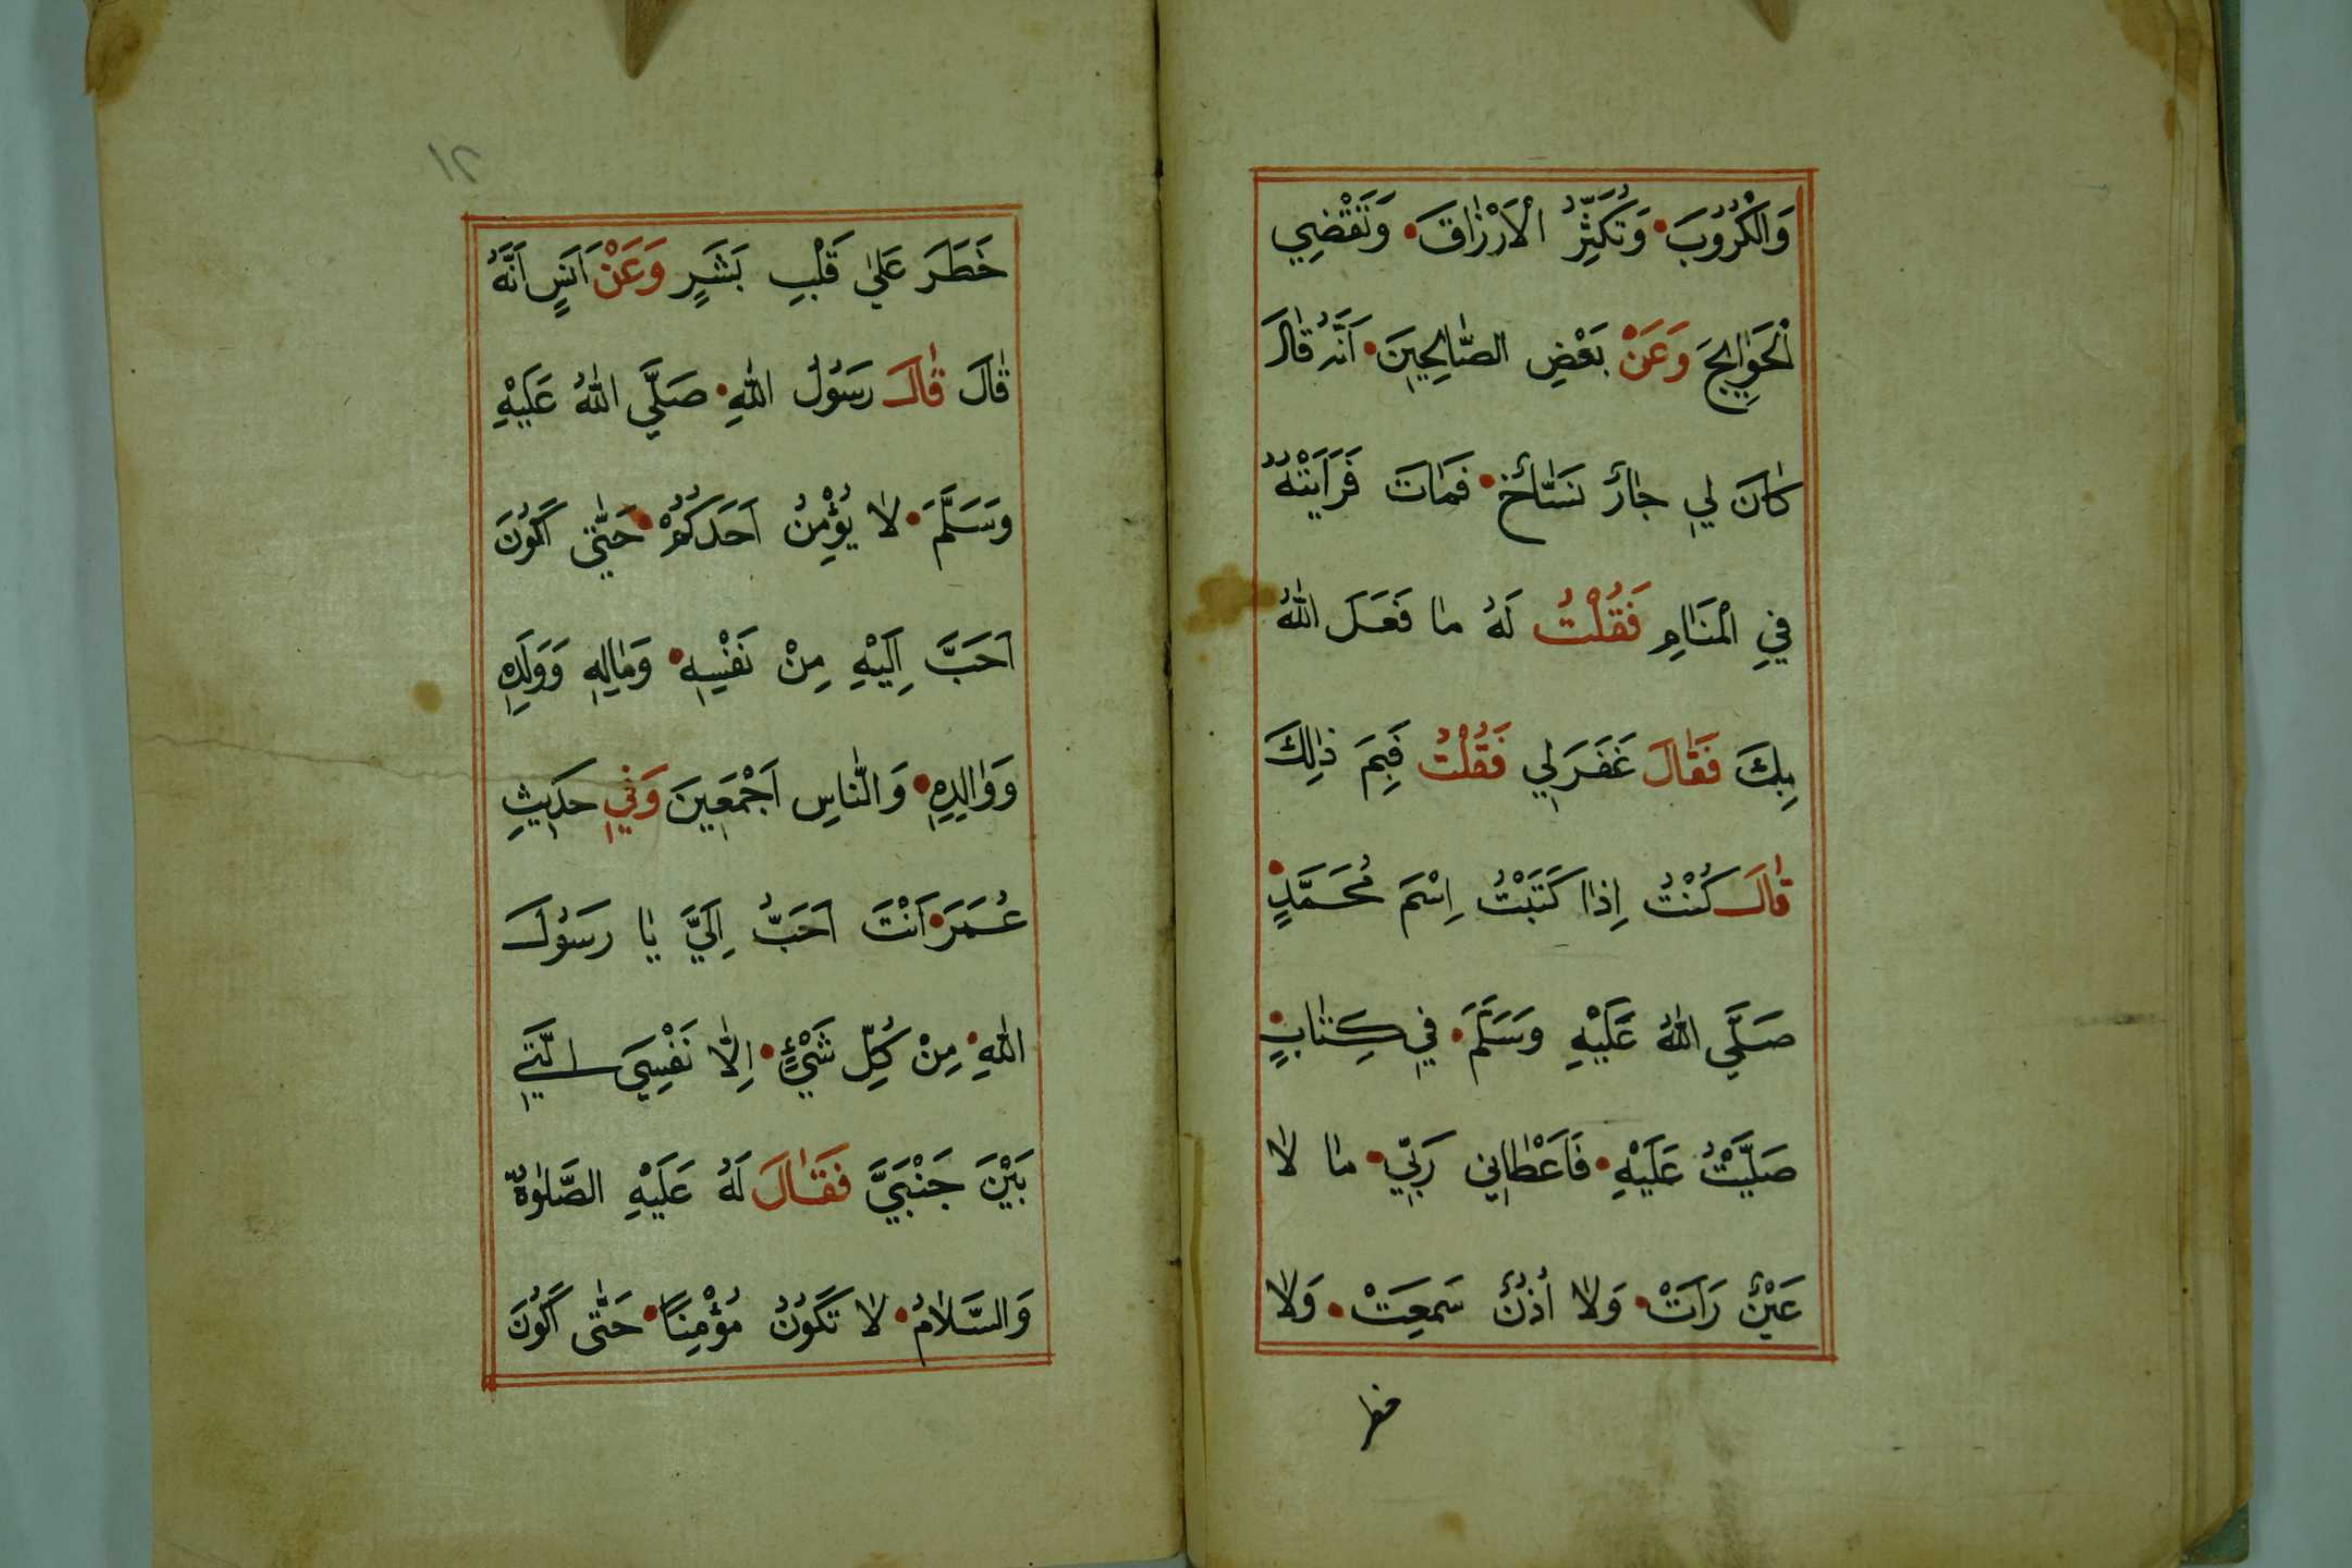 وَالْكُرُوبَ وَتُكَثِّرُ الْاَرْزَاقَ وَتَقْضِي
الْحَوَايِجَ وَعَنْ بَعْضِ الصَّالِحِينَ اَنَّهُ قَالَ
كَانَ لِي جَارٌ نَسَّاخٌ فَمَاتَ فَرَاَيْتُهُ
فِي الْمَنَامِ فَقُلْتُ لَهُ مَا فَعَلَ اللّٰهُ
بِكَ فَقَالَ غَفَرَ لِي فَقُلْتُ فَبِمَ ذٰلِكَ
قَالَ كُنْتُ اِذَا كَتَبْتُ اِسْمَ مُحَمَّدٍ
صَلَّي اللّٰهُ عَلَيْهِ وَسَلَّمَ فِي كِتَابٍ
صَلَّيْتُ عَلَيْهِ فَاَعْطَانِي رَبِّي مَا لَا
عَيْنٌ رَاَتْ وَلَا اُذُنٌ سَمِعَتْ وَلَا
خطر
١٢
خَطَرَ عَلٰي قَلْبِ بَشَرٍ وَعَنْ اَنَسٍ اَنَّهُ
قَالَ قَالَ رَسُولُ اللّٰهِ صَلَّي اللّٰهُ عَلَيْهِ
وَسَلَّمَ لَا يُؤْمِنُ اَحَدُكُمْ حَتّٰي اَكُونَ
اَحَبَّ اِلَيْهِ مِنْ نَفْسِهِ وَمَالِهِ وَوَلَدِهِ
وَوَالِدِهِ وَالنَّاسِ اَجْمَعِينَ وَفِي حَدِيثِ
عُمَرَ اَنْتَ اَحَبُّ اِلَيَّ يَا رَسُولَ
اللّٰهِ مِنْ كُلِّ شَيْءٍ اِلَّا نَفْسِيَ الَّتِي
بَيْنَ جَنْبَيَّ فَقَالَ لَهُ عَلَيْهِ الصَّلٰوةُ
وَالسَّلَامُ لَا تَكُونُ مُؤْمِنًا حَتّٰي اَكُونَ